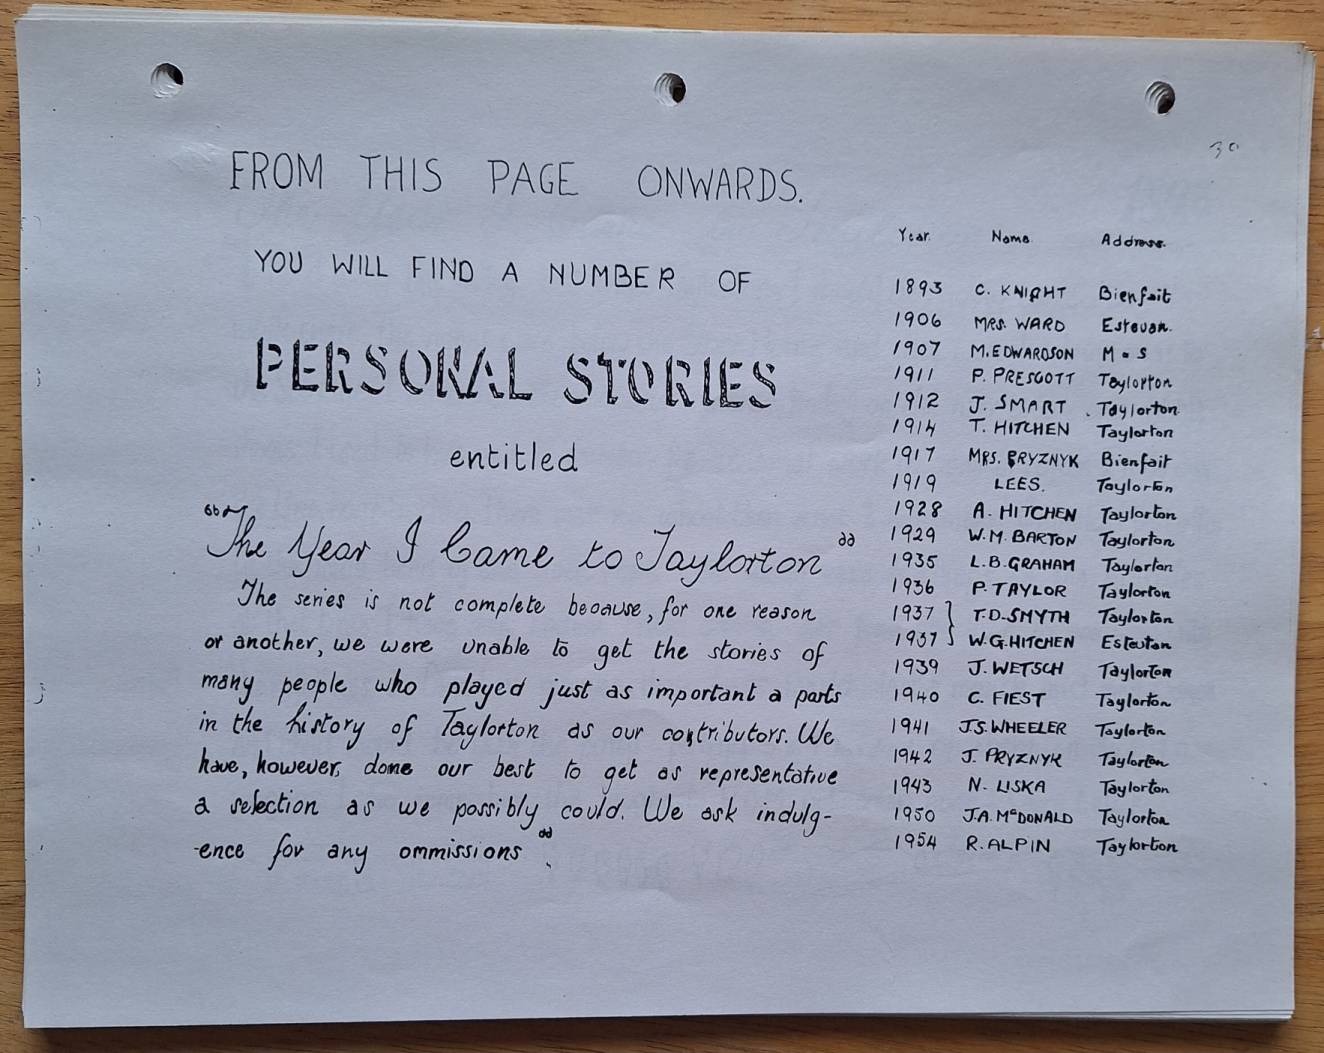 30
FROM THIS PAGE ONWARDS.
YOU WILL FIND A NUMBER OF
PERSONAL STORIES
entitled
"The Year I Came to Taylorton"
The series is not complete because, for one reason
or another, we were unable to get the stories of
many people who played just as important a parts
in the history of Taylorton as our contributors. We
have, however, done our best to get as representative
a selection as we possibly could. We ask indulg-
-ence for any ommissions".
Year. Name Address.
1893 C. KNIGHT Bienfait
1906 MRS. WARD Estevan.
1907 M. EDWARDSON M = S
1911 P. PRESCOTT Taylorton
1912 J. SMART Taylorton
1914 T. HITCHEN Taylorton
1917 MRS. PRYZNYK Bienfait
1919 LEES. Taylorton
1928 A. HITCHEN Taylorton
1929 W.M. BARTON Taylorton
1935 L.B. GRAHAM Taylorton
1936 P. TAYLOR Taylorton
1937 } T.D. SMYTH Taylorton
1937 } W.G. HITCHEN Estevan
1939 J. WETSCH Taylorton
1940 C. FIEST Taylorton
1941 J.S. WHEELER Taylorton
1942 J. PRYZNYK Taylorton
1943 N. LISKA Taylorton
1950 J.A. McDONALD Taylorton
1954 R. ALPIN Taylorton